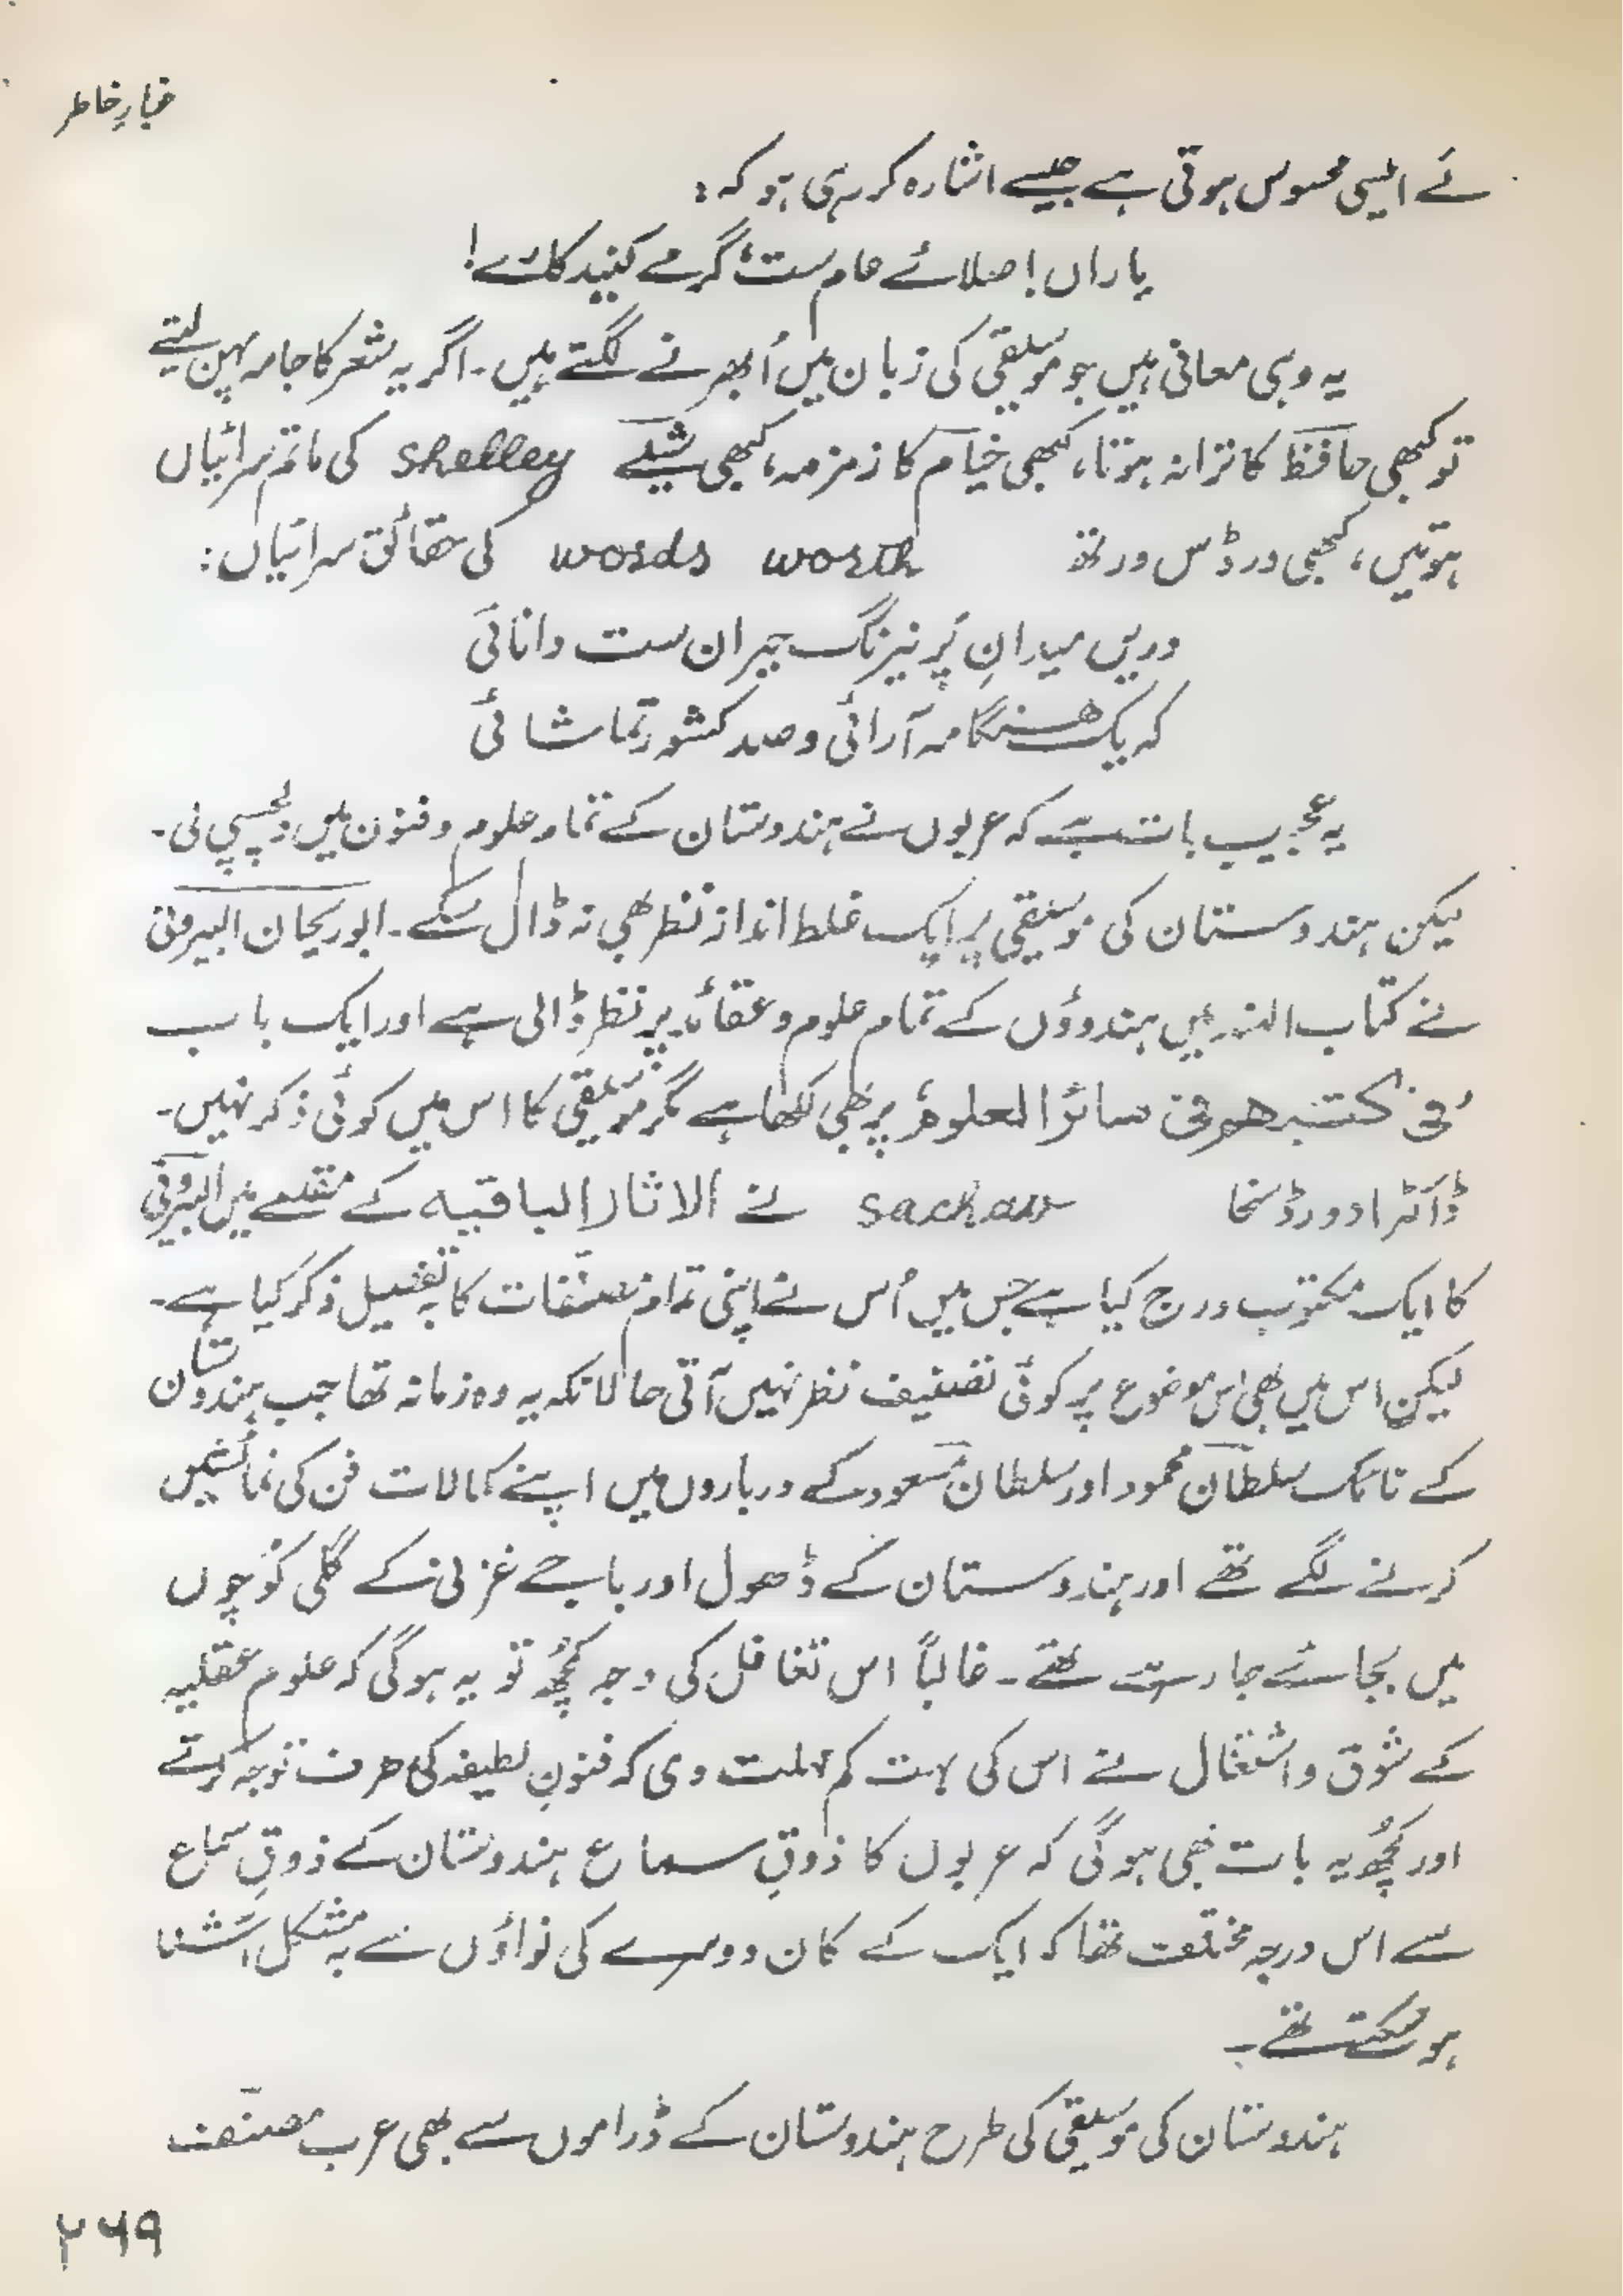 غبارِ خاطر
نے ایسی محسوس ہوتی ہے جیسے اشارہ کر رہی ہو کہ:
یاراں! صلائے عام ست، گر مے کنید کارے!
یہ وہی معانی ہیں جو موسیقی کی زبان میں اُبھرنے لگتے ہیں۔ اگر یہ شعر کا جامہ پہن لیتے
تو کبھی حافظ کا ترانہ ہوتا، کبھی خیام کا زمزمہ، کبھی شیلے shelley کی ماتم سرائیاں
ہوتیں، کبھی ورڈس ورتھ words worth کی حقائق سرائیاں:
دریں میدانِ پُر نیرنگ حیران ست دانائی
کہ یک ھنگامہ آرائی و صد کشور تماشائی
یہ عجیب بات ہے کہ عربوں نے ہندوستان کے تمام علوم و فنون میں دلچسپی لی۔
لیکن ہندوستان کی موسیقی پر ایک غلط انداز نظر بھی نہ ڈال سکے۔ ابوریحان البیرونی
نے کتاب الہند میں ہندوؤں کے تمام علوم و عقائد پر نظر ڈالی ہے اور ایک باب
فی کتبھم فی سائر العلوم پر بھی لکھا ہے مگر موسیقی کا اس میں کوئی ذکر نہیں۔
ڈاکٹر ادوورڈ سخا sachau نے الاثار الباقیہ کے مقدمے میں البیرونی
کا ایک مکتوب درج کیا ہے جس میں اُس نے اپنی تمام مصنّفات کا بہ تفصیل ذکر کیا ہے۔
لیکن اس میں بھی اس موضوع پر کوئی تصنیف نظر نہیں آتی حالانکہ یہ وہ زمانہ تھا جب ہندوستان
کے نائک سلطان محمود اور سلطان مسعود کے درباروں میں اپنے کمالات فن کی نمائشیں
کرنے لگے تھے اور ہندوستان کے ڈھول اور باجے غزنی کے گلی کوچوں
میں بجائے جا رہے تھے۔ غالباً اس تغافل کی وجہ کچھ تو یہ ہوگی کہ علوم عقلیہ
کے شوق و اشتغال نے اس کی بہت کم مہلت دی کہ فنونِ لطیفہ کی طرف توجہ کرتے
اور کچھ یہ بات بھی ہوگی کہ عربوں کا ذوقِ سماع ہندوستان کے ذوقِ سماع
سے اس درجہ مختلف تھا کہ ایک کے کان دوسرے کی نواؤں سے بہ مشکل آشنا
ہو سکتے تھے۔
ہندوستان کی موسیقی کی طرح ہندوستان کے ڈراموں سے بھی عرب مصنّف
۲۶۹